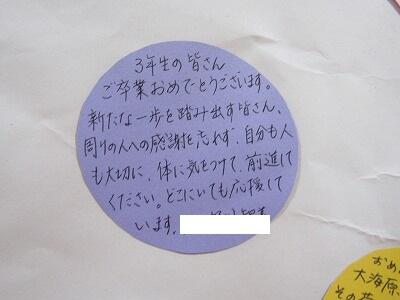 3年生の皆さん
ご卒業おめでとうございます。
新たな一歩を踏み出す皆さん、
周りの人への感謝を忘れず、自分も人
も大切に、体に気をつけて、前進して
ください。どこにいても応援して
います。
おめ
大海原
その